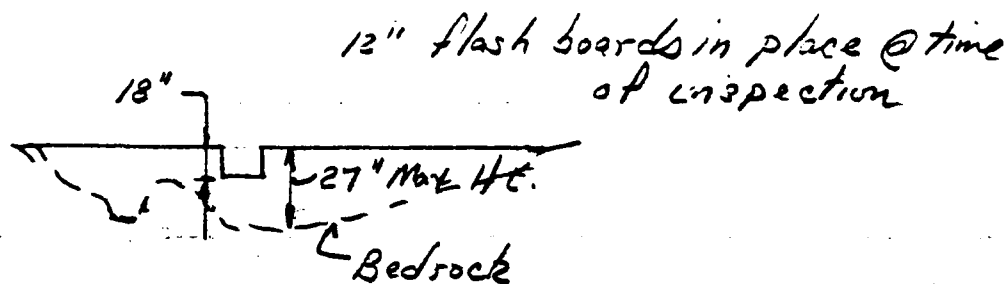 12" flash boards in place @ time
of inspection
18"
27" Max Ht.
Bedrock